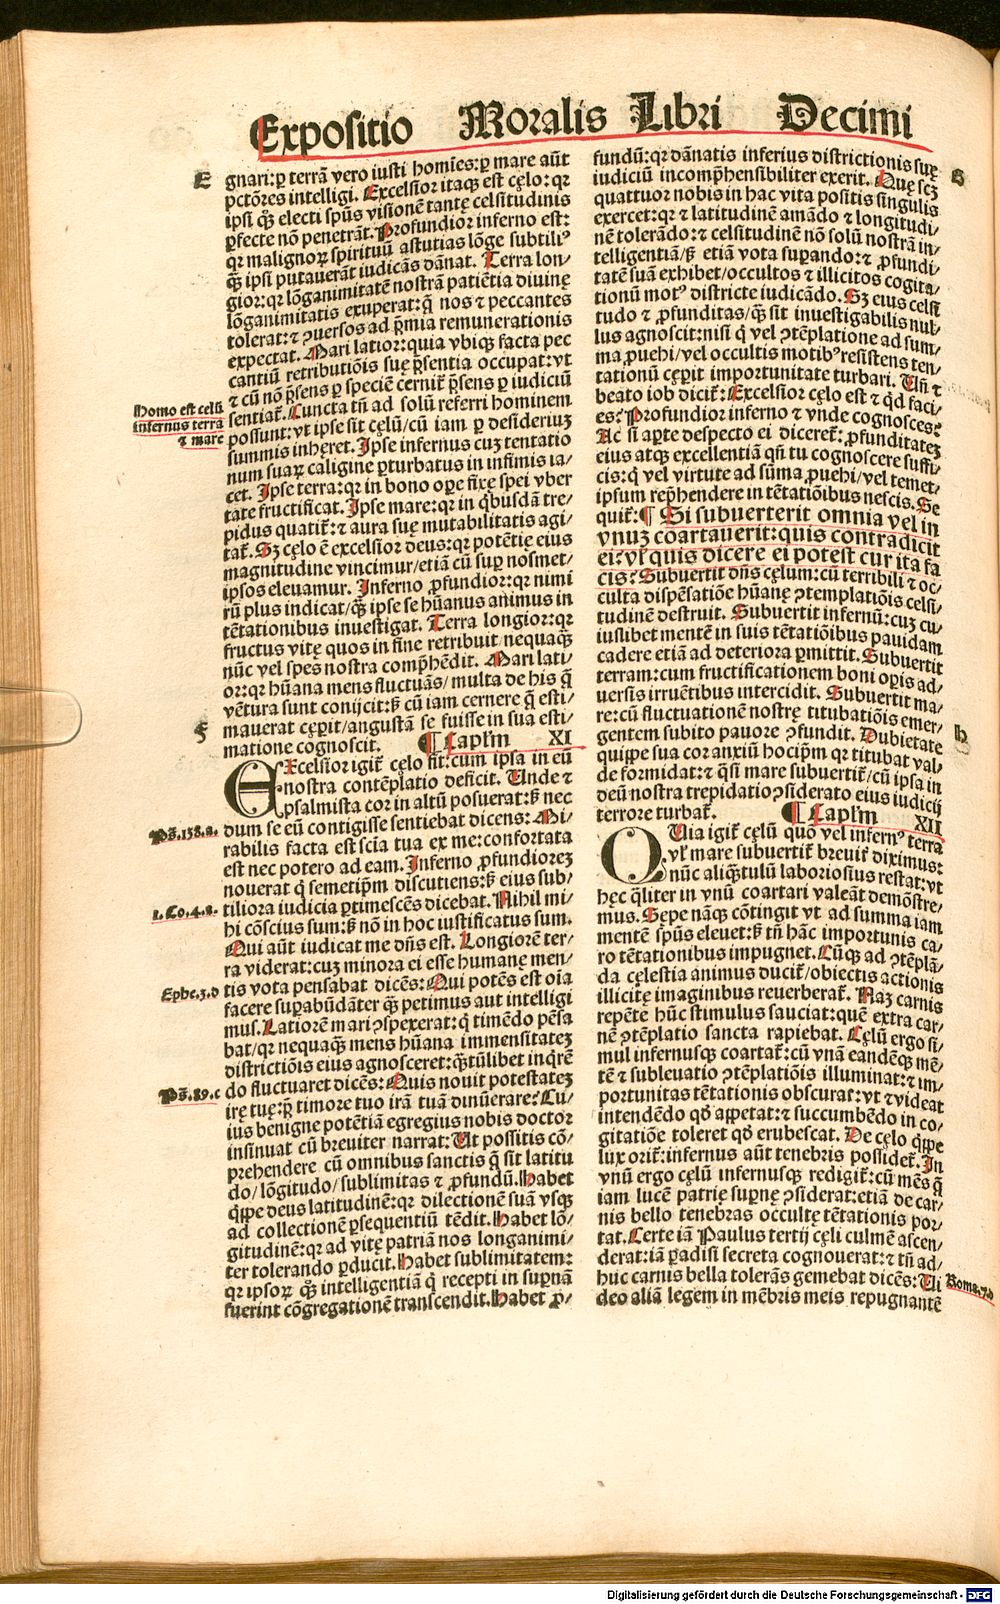 Expositio Moralis Libri Decimi
E
gnari: ꝑ terrã vero iusti homĩes: ꝑ mare aũt
pctõres intelligi. Excelsior itaqꝫ est cęlo: qꝛ
ipsi qꝫ electi spũs visionẽ tantę celsitudinis
ꝑfecte nõ penetrãt. Profundior inferno est:
qꝛ malignoꝝ spirituũ astutias lõge subtiliꝰ
qꝫ ipsi putauerãt iudicãs dãnat. Terra lon/
gior: qꝛ lõganimitatẽ nostrã patiẽtia diuinę
lõganimitatis exuperat: q̃ nos ⁊ peccantes
tolerat: ⁊ ꝯuersos ad p̃mia remunerationis
expectat. Mari latior: quia vbiqꝫ facta pec
cantiũ retributiõis suę p̃sentia occupat: vt
⁊ cũ nõ p̃sens ꝑ speciẽ cernit᷑ p̃sens ꝑ iudiciũ
sentiat᷑. Cuncta tñ ad solũ referri hominem
possunt: vt ipse sit cęlũ/ cũ iam ꝑ desideriuꝫ
summis inhęret. Ipse infernus cuꝫ tentatio
num suaꝝ caligine ꝑturbatus in infimis ia/
cet. Ipse terra: qꝛ in bono oꝑe fixę spei vber
tate fructificat. Ipse mare: qꝛ in q̇busdã tre/
pidus quatit᷑: ⁊ aura suę mutabilitatis agi/
tat᷑. Sꝫ cęlo ẽ excelsior deus: qꝛ potẽtię eius
magnitudine vincimur/ etiã cũ suꝑ nosmet/
ipsos eleuamur. Inferno ꝓfundior: qꝛ nimi
rũ plus indicat/ qꝫ ipse se hũanus animus in
tẽtationibus inuestigat. Terra longior: qꝛ
fructus vitę quos in fine retribuit/ nequaqꝫ
nũc vel spes nostra comp̃hẽdit. Mari lati/
or: qꝛ hũana mens fluctuãs/ multa de his q̃
vẽtura sunt conijcit: ß cũ iam cernere q̃ esti/
mauerat cęꝑit/ angustã se fuisse in sua esti/
matione cognoscit. ¶ Capl̃m XI
EXcelsior igit᷑ cęlo fit: cum ipsa in eũ
nostra contẽplatio deficit. Unde ⁊
psalmista cor in altũ posuerat: ß nec
dum se eũ contigisse sentiebat dicens: Mi/
rabilis facta est scĩa tua ex me: confortata
est nec potero ad eam. Inferno ꝓfundioreꝫ
nouerat q̇ semetip̃m discutiens: ß eius sub/
tiliora iudicia ꝑtimescẽs dicebat. Nihil mi/
hi cõscius sum: ß nõ in hoc iustificatus sum.
Qui aũt iudicat me dñs est. Longiorẽ ter/
ra viderat: cuꝫ minora ei esse humanę men/
tis vota pensabat dicẽs: Qui potẽs est oĩa
facere suꝑabũdãter qꝫ petimus aut intelligi
mus. Latiorẽ mari ꝯspexerat: q̇ timẽdo pẽsa
bat/ qꝛ nequaqꝫ mens hũana immensitateꝫ
districtiõis eius agnosceret: qꝫtũlibet inq̇rẽ
do fluctuaret dicẽs: Quis nouit potestateꝫ
irę tuę: p̃ timore tuo irã tuã dinũerare? Cu/
ius benigne potẽtiã egregius nobis doctor
insinuat cũ breuiter narrat: Ut possitis cõ/
prehendere cũ omnibus sanctis q̃ sit latitu
do/ lõgitudo/ sublimitas ⁊ ꝓfundũ. Habet
q̇ppe deus latitudinẽ: qꝛ dilectionẽ suã vsqꝫ
ad collectionẽ ꝑsequentiũ tẽdit. Habet lõ/
gitudinẽ: qꝛ ad vitę patriã nos longanimi/
ter tolerando ꝑducit. Habet sublimitatem:
qꝛ ipsoꝝ qꝫ intelligentiã q̇ recepti in suꝑnã
fuerint cõgregationẽ transcendit. Habet ꝓ/
Homo est celũ
infernus terra
⁊ mare
F
Ps̃. 138. a.
1. Co. 4. a.
Ephe. 3. d
Ps̃. 89. c
fundũ: qꝛ dãnatis inferius districtionis suę
iudiciũ incomp̃hensibiliter exerit. Quę scꝫ
quattuor nobis in hac vita positis singulis
exercet: qꝛ ⁊ latitudinẽ amãdo ⁊ longitudi/
nẽ tolerãdo: ⁊ celsitudinẽ nõ solũ nostrã in/
telligentiã/ ß etiã vota suꝑando: ⁊ ꝓfundi/
tatẽ suã exhibet/ occultos ⁊ illicitos cogita/
tionũ motꝰ districte iudicãdo. Sꝫ eius celsi
tudo ⁊ ꝓfunditas/ qꝫ sit inuestigabilis nul/
lus agnoscit: nisi q̇ vel ꝯtẽplatione ad sum/
ma ꝓuehi/ vel occultis motibꝰ resistens ten/
tationũ cęꝑit importunitate turbari. Uñ ⁊
beato iob dicit᷑: Excelsior cęlo est ⁊ qd̃ faci/
es? Profundior inferno ⁊ vnde cognosces?
Ac si aꝑte despecto ei diceret᷑: ꝓfunditateꝫ
eius atqꝫ excellentiã qñ tu cognoscere suffi/
cis: q̇ vel virtute ad sũma ꝓuehi/ vel temet/
ipsum rep̃hendere in tẽtatiõibus nescis. Se
quit᷑: ¶ Si subuerterit omnia vel in
vnuꝫ coartauerit: quis contradicit
ei? vl̃ quis dicere ei potest cur ita fa
cis? Subuertit dñs cęlum: cũ terribili ⁊ oc/
culta dispẽsatiõe hũanę ꝯtemplatiõis celsi/
tudinẽ destruit. Subuertit infernũ: cuꝫ cu/
iuslibet mentẽ in suis tẽtatiõibus pauidam
cadere etiã ad deteriora ꝑmittit. Subuertit
terram: cum fructificationem boni oꝑis ad/
uersis irruẽtibus intercidit. Subuertit ma/
re: cũ fluctuationẽ nostrę titubatiõis emer/
gentem subito pauore ꝯfundit. Dubietate
quippe sua cor anxiũ hocip̃m qꝛ titubat val/
de formidat: ⁊ q̃si mare subuertit᷑/ cũ ipsa in
deũ nostra trepidatio ꝯsiderato eius iudicij
terrore turbat᷑. ¶ Capl̃m XII
QUia igit᷑ cęlũ quõ vel infernꝰ terra
vl̃ mare subuertit᷑ breuit᷑ diximus:
nũc aliqꝫtulũ laboriosius restat: vt
hęc q̃liter in vnũ coartari valeãt demõstre/
mus. Sępe nãqꝫ cõtingit vt ad summa iam
mentẽ spũs eleuet: ß tñ hãc importunis ca/
ro tẽtationibus impugnet. Cũqꝫ ad ꝯtẽplã/
da cęlestia animus ducit᷑/ obiectis actionis
illicitę imaginibus reuerberat᷑. Naꝫ carnis
repẽte hũc stimulus sauciat: quẽ extra car/
nẽ ꝯtẽplatio sancta rapiebat. Cęlũ ergo si/
mul infernusqꝫ coartat᷑: cũ vnã eandẽqꝫ mẽ/
tẽ ⁊ subleuatio ꝯtẽplatiõis illuminat: ⁊ im/
portunitas tẽtationis obscurat: vt ⁊ videat
intendẽdo qd̃ appetat: ⁊ succumbẽdo in co/
gitatiõe toleret qd̃ erubescat. De cęlo q̇ppe
lux orit᷑: infernus aũt tenebris possidet᷑. In
vnũ ergo cęlũ infernusqꝫ redigit᷑: cũ mẽs q̃
iam lucẽ patrię suꝑnę ꝯsiderat: etiã de car/
nis bello tenebras occultę tẽtationis por/
tat. Certe iã Paulus tertij cęli culmẽ ascen/
derat: iã ꝑadisi secreta cognouerat: ⁊ tñ ad/
huc carnis bella tolerãs gemebat dicẽs: Ui
deo aliã legem in mẽbris meis repugnantẽ
G
H
Roma. 7. d
Digitalisierung gefördert durch die Deutsche Forschungsgemeinschaft - DFG